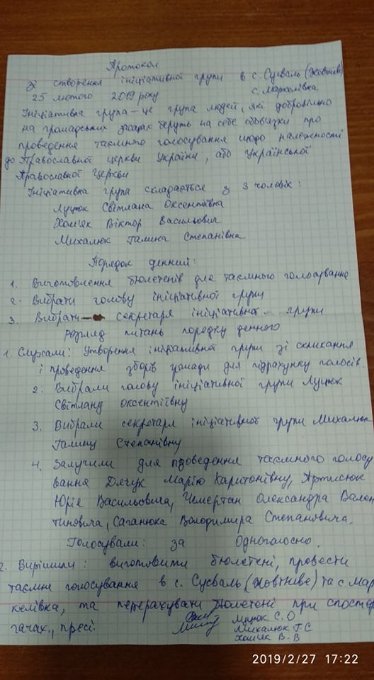 Протокол
Зі створення ініціативної групи в с. Сусваль (Жовтневе)
25 лютого 2019 року с. Маркелівка
Ініціативна група - це група людей, які добровільно
на громадських засадах беруть на себе обов'язки про
проведення таємного голосування щодо належності
до Православної церкви України, або Української
Православної Церкви
Ініціативна група складається з 3 чоловік:
Луцюк Світлана Оксентіївна
Хом'як Віктор Васильович
Михалюк Галина Степанівна
Порядок денний:
1. Виготовлення бюлетенів для таємного голосування
2. Вибрати голову ініціативної групи
3. Вибрати секретаря ініціативної групи
Розгляд питань порядку денного
1. Слухали: Утворення ініціативної групи зі скликання
і проведення зборів громади для підрахунку голосів
2. Вибрали голову ініціативної групи Луцюк
Світлану Оксентіївну
3. Вибрали секретаря ініціативної групи Михалюк
Галину Степанівну
4. Залучили для проведення таємного голосу
вання Марію Харитонівну,
Юрія Васильовича, Олександра Вален
тиновича, Саганюк Володимира Степановича.
Голосували: за Одноголосно
2. Вирішили: виготовити бюлетені, провести
таємне голосування в с. Сусваль (Жовтневе) та с. Мар
келівка, та перерахувати бюлетені при спостері
гачах, пресі.
Луцюк С.О
Михалюк Г.С
Хом'як В.В
2019/2/27 17:22